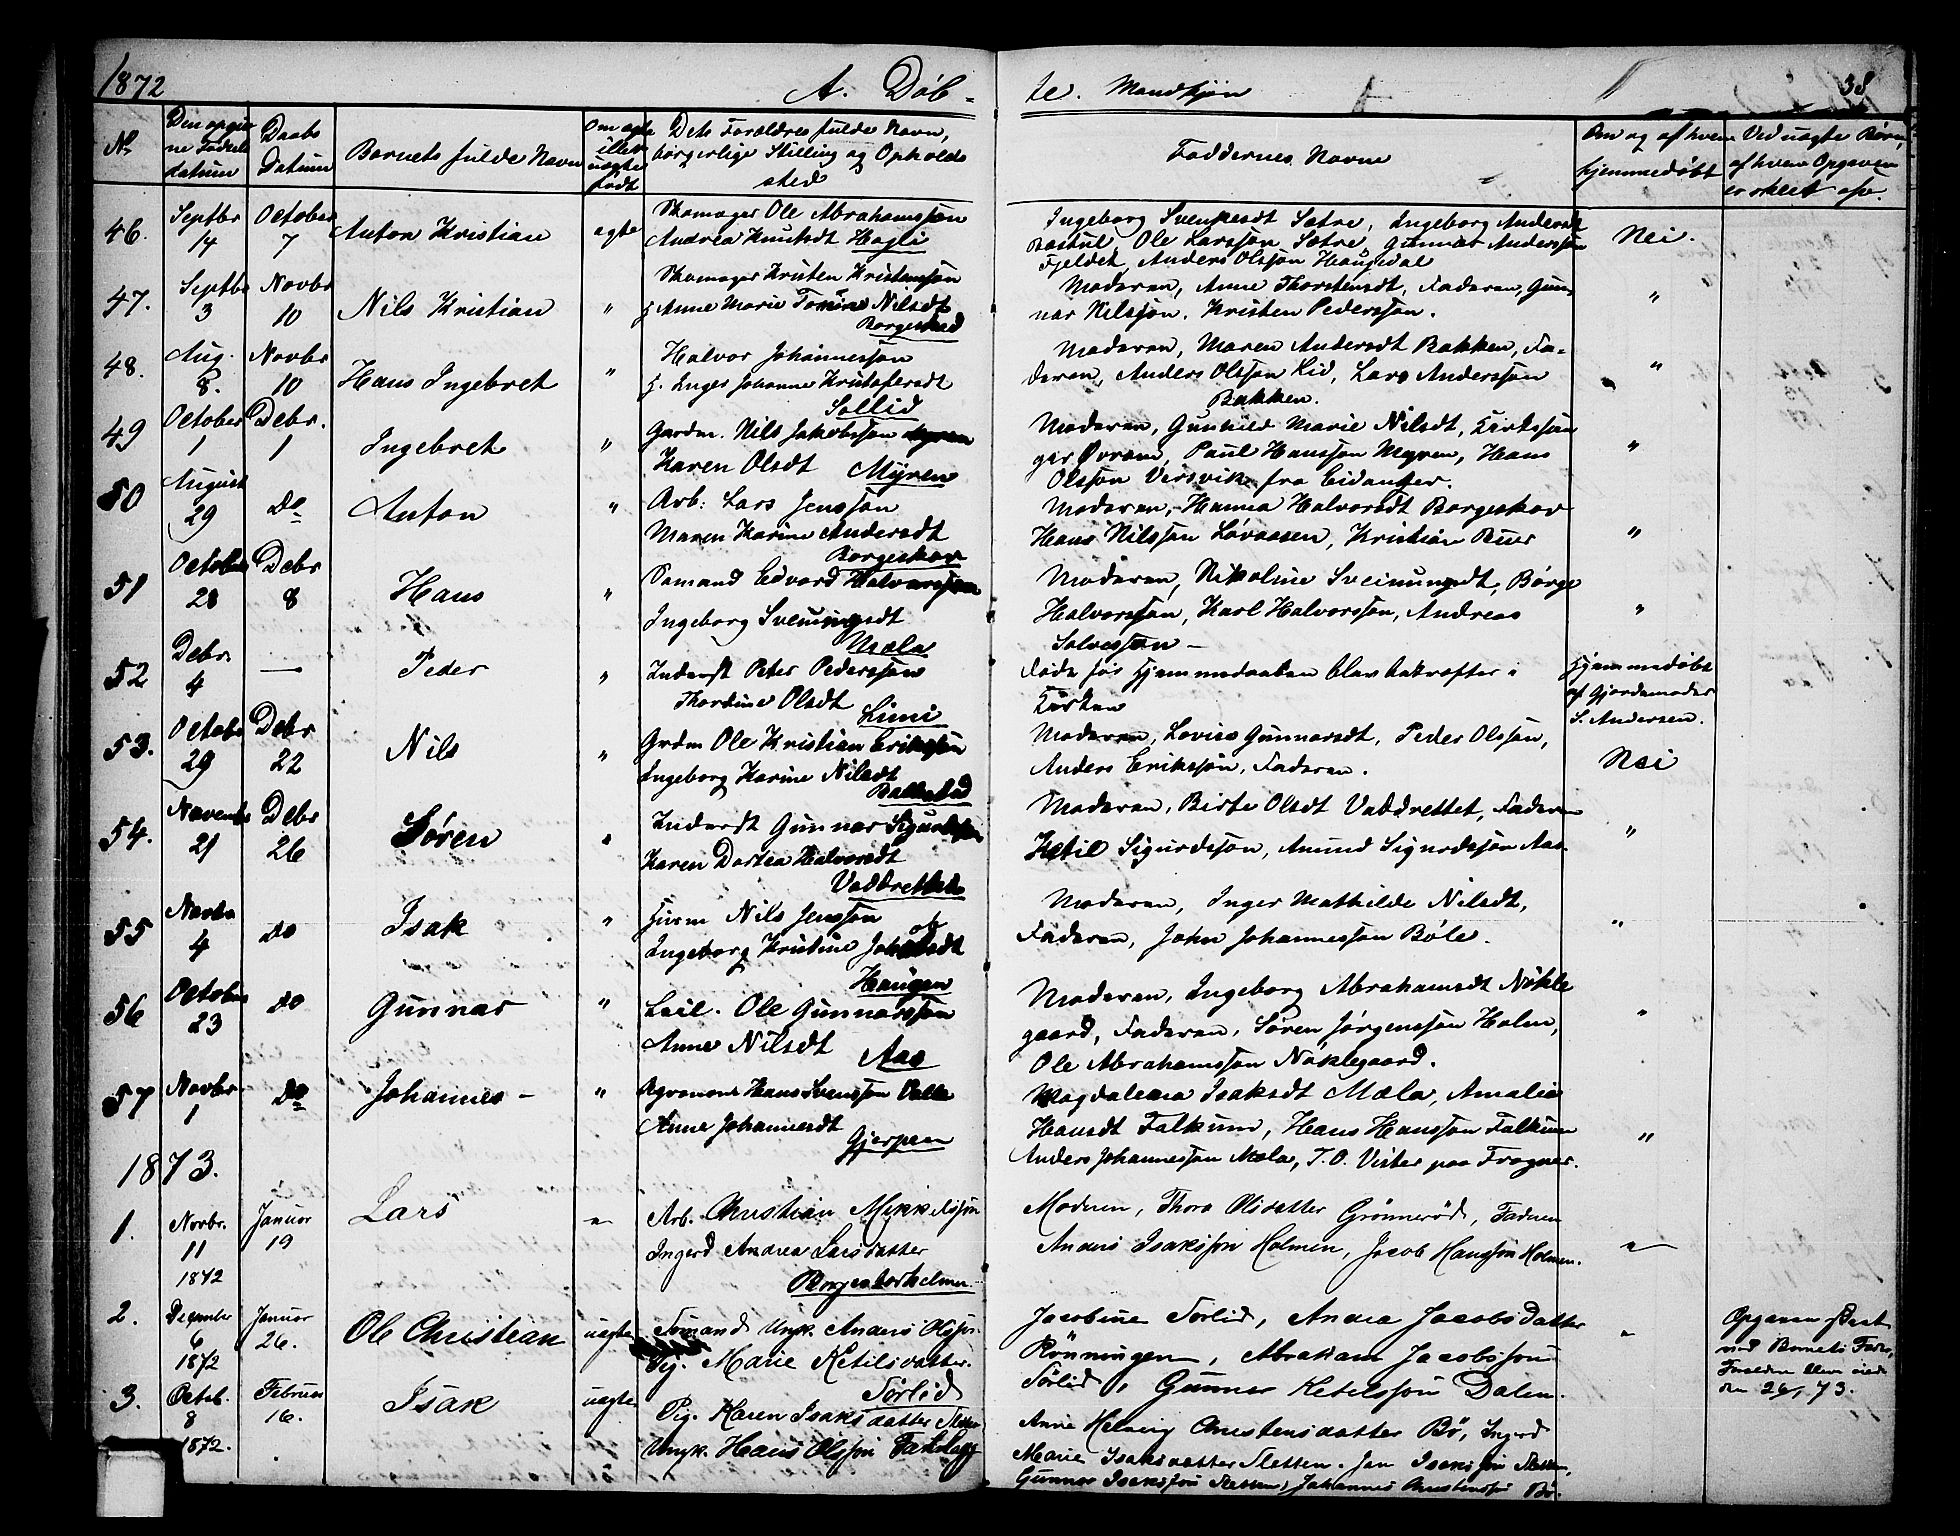 1872 A. Døb- te. Mandkjøn 38
No Den opgivne Fødselsdatum Daabs Datum Barnets fulde Navn Om ægte eller uægte født Dets Forældres fulde Navn, borgerlige Stilling og Opholdssted Faddernes Navne Om og af hvem hjemmedøbt Ved uægte Børn, af hvem Opgaven er skeet osv.
46. Septbr 14 October 7 Anton Kristian ægte Skomager Ole Abrahamssøn
Andrea Knutsdt Høgli
Ingeborg Svenkesdt Sætre, Ingeborg Andersdt
Ole Larssøn Sætre, Gunnar Anderssøn
Fjeldet, Anders Olssøn Haugedal
Nei.
47. Septbr 3 Novbr 10 Nils Kristian " Skomager Kristen Kristenssøn
H. Anne Marie Tomine Nilsdt
Borgestad
Moderen, Anne Thorstensdt, Faderen, Gun-
nar Nilssøn, Kristen Pederssøn.
"
48. Aug. 8. Novbr 10 Hans Ingebret " Halvor Johannessøn
H. Inger Johanne Kristofersdt
Sollid
Moderen, Maren Andersdt Bakken, Fa-
deren, Anders Olssøn Lid, Lars Anderssøn
Bakken.
"
49 October 1 Debr. 1 Ingebret " Gaardm. Nils Jakobssøn
Karen Olsdt Myren
Moderen, Gunhild Marie Nilsdt, Kirkesan-
ger Øvrom, Paul Hanssøn Myren, Hans
Olssøn Versvik fra Eidanger.
"
50 August 29 Do Anton " Arb: Lars Jenssøn
Maren Karine Andersdt
Borgeskov
Moderen, Hanna Halvorsdt Borgeskov
Hans Nilssøn Løvaasen, Kristian Buer
"
51 October 28 Debr 8 Hans " Sømand Edvard Halvorssøn
Ingeborg Sveinungsdt
Mæla
Moderen, Nikoline Sveinungsdt, Børge
Halvorssøn, Karl Halvorssøn, Andreas
Solvessøn –
"
52 Debr. 4 — Peder " Inderst Peter Pederssøn
Thordine Olsdt Limi
Døde før Hjemmedaaben blev bekræftet i
Kirken
Hjemmedøbt
af Gjordemoder
S. Andersen.
53. October 29 Debr 22 Nils " Grdm Ole Kristian Erikssøn
Ingeborg Karine Nilsdt
Ballestad
Moderen, Lovise Gunnarsdt, Peder Olssøn,
Anders Erikssøn, Faderen.
Nei
54. November 21 Debr 26 Søren " Inderst Gunnar Sigurdssøn
Karen Dortea Halvorsdt
Vaddrettet
Moderen, Birte Olsdt Vaddrettet, Faderen
Ketil Sigurdssøn, Amund Sigurdssøn Aas.
"
55 Novbr 4 do Isak " Husm Nils Jenssøn og
Ingeborg Kristine Johnsdt
Haugen
Moderen, Inger Mathilde Nilsdt,
Faderen, John Johannessøn Bøle.
"
56 October 23 do Gunnar " Leil. Ole Gunnarssøn
Anne Nilsdt Aas
Moderen, Ingeborg Abrahamsdt Nøkle
gaard, Faderen, Søren Jørgenssøn Holm,
Ole Abrahamssøn Nøklegaard.
"
57 Novbr 1 Do Johannes – " Agronom Hans Svenssøn Valle
Anne Johannesdt
Gjerpen
Magdalena Isaksdt Mæla, Amalie
Hansdt Falkum, Hans Hanssøn Falkum
Anders Johannessøn Mæla, T. O. Vister paa Frogner.
"
1873.
1. Novbr. 11 1872 Januar 19 Lars " Arb. Christian Mikkelssøn
Ingerd Andrea Larsdatter
Borgestadholmen
Moderen, Thora Olsdatter Grønnerød, Faderen
Anders Isakssøn Holmen, Jacob Hanssøn Holmen.
"
2. December 6 1872 Januar 26. Ole Christian uægte Sømand Ungk. Anders Olssøn
Pig. Marie Ketilsdatter.
Sørlid
Jacobine Sørlid, Andrea Jacobsdatter
Rønningen, Abraham Jacobssøn
Sørlid, Gunnar Ketelssøn Dalen.
"
Opgaven skeet
ved Barnets Fader,
Forældrene blev viede
den 26/1 73.
3. Octob. 8 1872. Februar 16. Isak uægte Pig. Karen Isaksdatter Sletten
Ungk. Hans Olssøn
Anne Helvig Christensdatter Bø, Ingerd
Marie Isaksdatter Sletten. Jan Isakssøn Sletten,
Gunnar Isakssøn Sletten, Johannes Christenssøn Bø.